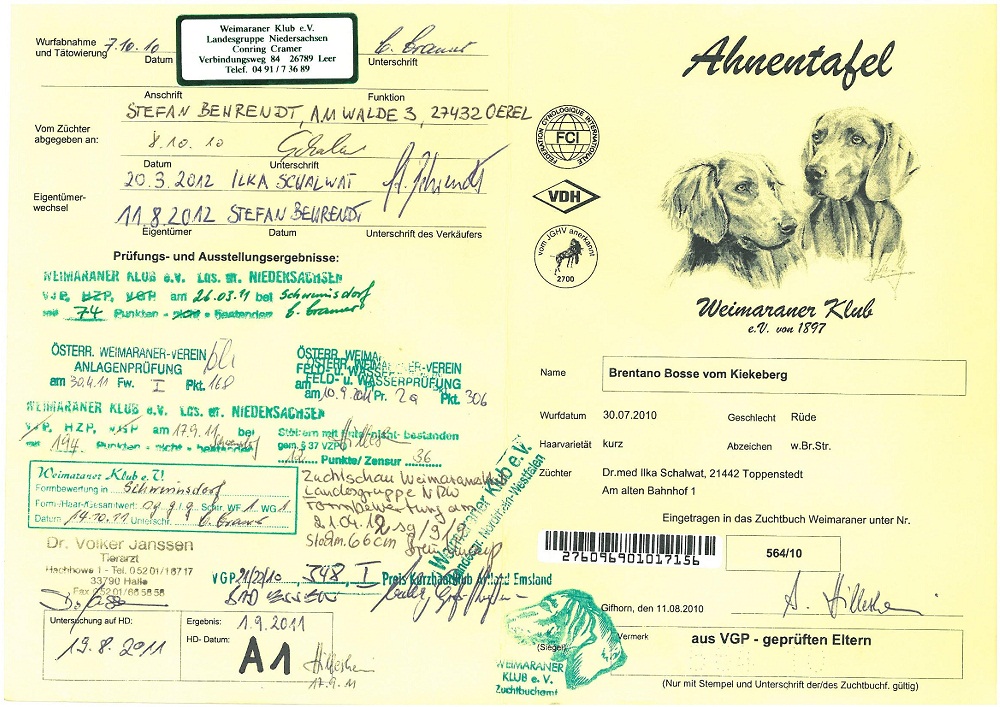 Wurfabnahme
und Tätowierung
7.10.10
Datum
Weimaraner Klub e.V.
Landesgruppe Niedersachsen
Conring Cramer
Verbindungsweg 84 26789 Leer
Telef. 04 91 / 7 36 89
C. Cramer
Unterschrift
Anschrift
Funktion
STEFAN BEHRENDT, AM WALDE 3, 27432 OEREL
Vom Züchter
abgegeben an:
8.10.10
Schalwat
Datum
Unterschrift
20.3.2012 ILKA SCHALWAT
Eigentümer-
wechsel
11.8.2012 STEFAN BEHRENDT
Eigentümer
Datum
Unterschrift des Verkäufers
Prüfungs- und Ausstellungsergebnisse:
WEIMARANER KLUB e.V. LGS. gr. NIEDERSACHSEN
VJP, HZP, VGP am 26.03.11 bei Schwinisdorf
mit 74 Punkten - nicht - bestanden C. Cramer
ÖSTERR. WEIMARANER-VEREIN
ANLAGENPRÜFUNG
am 30.4.11 Fw. I Pkt. 168
ÖSTERR. WEIMARANER-VEREIN
FELD- u. WASSERPRÜFUNG
am 10.9.2011 Pr. 2a Pkt. 306
WEIMARANER KLUB e.V. LGS. gr. NIEDERSACHSEN
VJP, HZP, VGP am 17.9.11 bei
mit 194 Punkten - nicht - bestanden
Stöbern mit Ente nicht bestanden
gem. § 37 VZPO
Punkte/ Zensur 36
Weimaraner Klub e.V.
Formbewertung in Schwinisdorf
Form-/Haar-/Gesamtwert: sg/g/g Schr. WF 1 WG 1
Datum 14.10.11 Unterschr. C. Cramer
Zuchtschau Weimaraner Klub
Landesgruppe NRW
Formbewertung am
21.04.12 sg/g/
Stockm. 66 cm
Weimaraner Klub e.V.
Landesgr. Nordrhein-Westfalen
Dr. Volker Janssen
Tierarzt
Hachhowe 1 - Tel. 05201/16717
33790 Halle
Fax 05201/665858
VGP 21/22/10 348 I Preis Kurzhaarklub Emsland
BAD ESSEN
Untersuchung auf HD:
19.8.2011
Ergebnis: 1.9.2011
HD-Datum:
A1
Hilleshen
17.9.11
Ahnentafel
FEDERATION CYNOLOGIQUE INTERNATIONALE
FCI
VDH
vom JGHV anerkannt
2700
Weimaraner Klub
e.V. von 1897
Name
Brentano Bosse vom Kiekeberg
Wurfdatum 30.07.2010 Geschlecht Rüde
Haarvarietät kurz Abzeichen w.Br.Str.
Züchter Dr.med Ilka Schalwat, 21442 Toppenstedt
Am alten Bahnhof 1
Eingetragen in das Zuchtbuch Weimaraner unter Nr.
276096901017156
564/10
Gifhorn, den 11.08.2010
(Siegel)
WEIMARANER
KLUB e. V.
Zuchtbuchamt
Vermerk
aus VGP - geprüften Eltern
(Nur mit Stempel und Unterschrift der/des Zuchtbuchf. gültig)